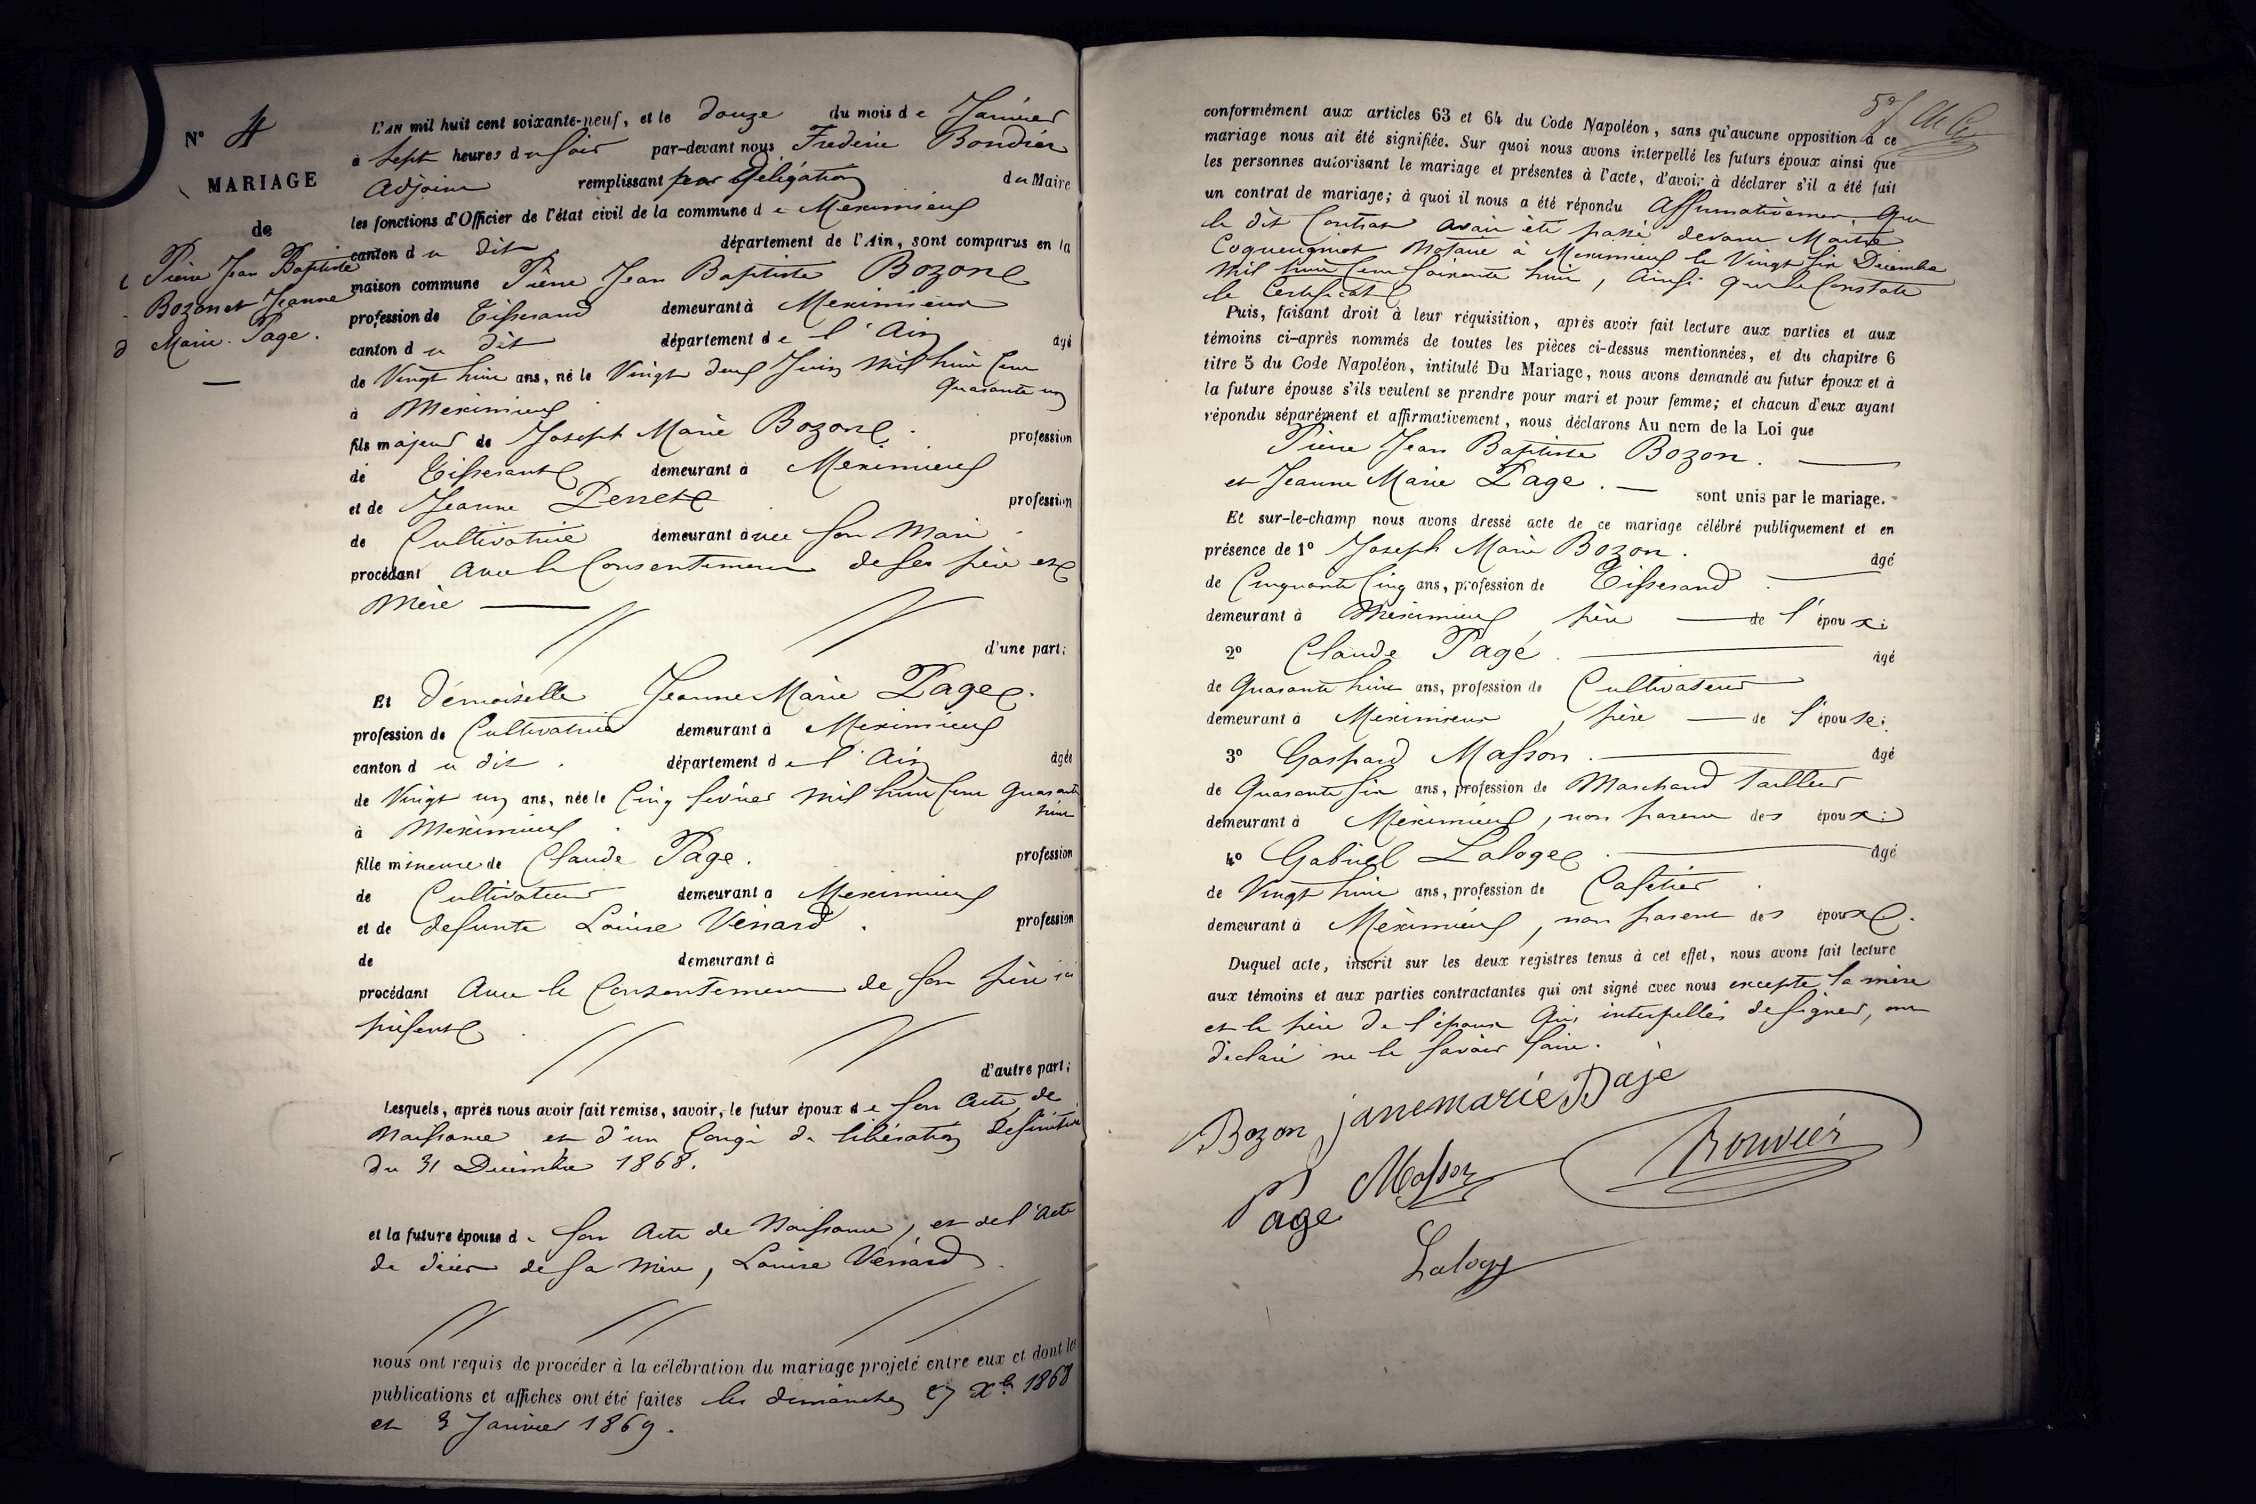 N° 4
MARIAGE
de
Pierre Jean Baptiste
Bozon et Jeanne
Marie Page.
L'AN mil huit cent soixante-neuf, et le douze du mois de Janvier
à sept heures du soir par-devant nous Frederic
Adjoint remplissant par Délégation du Maire
les fonctions d'Officier de l'état civil de la commune de Meximieux
canton du dit département de l'Ain, sont comparus en la
maison commune Pierre Jean Baptiste Bozon
profession de Tisserand demeurant à Meximieux
canton du dit département de l'Ain âgé
de Vingt huit ans, né le Vingt deux Juin mil huit Cent
quarante un
à Meximieux
fils majeur de Joseph Marie Bozon. profession
de Tisserant demeurant à Meximieux
et de Jeanne Perret profession
de Cultivatrice demeurant avec son Mari
procédant avec le Consentement de ses père et
Mère
d'une part;
Et Démoiselle Jeanne Marie Page.
profession de Cultivatrice demeurant à Meximieux
canton du dit. département de l'Ain âgée
de Vingt un ans, née le Cinq février mil huit Cent quarante
huit
à Meximieux
fille mineure de Claude Page. profession
de Cultivateur demeurant à Meximieux
et de defunte Louise Venard. profession
de demeurant à
procédant avec le Consentement de son père ici
présent
d'autre part;
Lesquels, après nous avoir fait remise, savoir, le futur époux de son acte de
Naissance et d'un Congé de libération définitive
du 31 Décembre 1868.
et la future épouse de son acte de Naissance, et de l'acte
de décès de sa mère, Louise Venard.
nous ont requis de procéder à la célébration du mariage projeté entre eux et dont les
publications et affiches ont été faites les dimanches 27 Xbre 1868
et 3 Janvier 1869.
conformément aux articles 63 et 64 du Code Napoléon, sans qu'aucune opposition à ce
mariage nous ait été signifiée. Sur quoi nous avons interpellé les futurs époux ainsi que
les personnes autorisant le mariage et présentes à l'acte, d'avoir à déclarer s'il a été fait
un contrat de mariage; à quoi il nous a été répondu affirmativement, que
le dit Contrat avait été passé devant Maitre
Coqueugniot Notaire à Meximieux le Vingt six Décembre
mil huit Cent soixante huit, ainsi que le Constate
le Certificat
Puis, faisant droit à leur réquisition, après avoir fait lecture aux parties et aux
témoins ci-après nommés de toutes les pièces ci-dessus mentionnées, et du chapitre 6
titre 5 du Code Napoléon, intitulé Du Mariage, nous avons demandé au futur époux et à
la future épouse s'ils veulent se prendre pour mari et pour femme; et chacun d'eux ayant
répondu séparément et affirmativement, nous déclarons Au nom de la Loi que
Pierre Jean Baptiste Bozon.
et Jeanne Marie Page. sont unis par le mariage.
Et sur-le-champ nous avons dressé acte de ce mariage célébré publiquement et en
présence de 1° Joseph Marie Bozon. âgé
de Cinquante Cinq ans, profession de Tisserand
demeurant à Meximieux, père de l'époux;
2° Claude Page. âgé
de Quarante huit ans, profession de Cultivateur
demeurant à Meximieux, père de l'épouse;
3° Gaspard Masson. âgé
de Quarante six ans, profession de Marchand tailleur
demeurant à Meximieux, non parent des époux;
4° Gabriel Laloge. âgé
de Vingt huit ans, profession de Cafetier
demeurant à Meximieux, non parent des époux.
Duquel acte, inscrit sur les deux registres tenus à cet effet, nous avons fait lecture
aux témoins et aux parties contractantes qui ont signé avec nous excepté la mère
et le père de l'époux qui, interpellés de signer, ont
déclaré ne le savoir faire.
Bozon janemarie Page
Page Masson Bouvier
Laloge